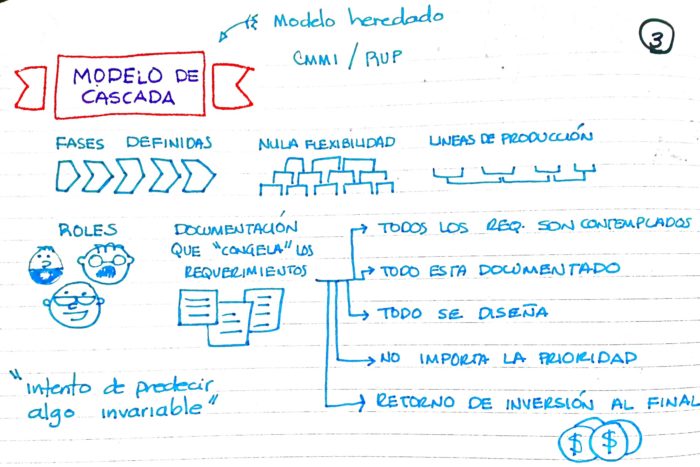 Modelo heredado
CMMI / RUP
3
MODELO DE
CASCADA
FASES DEFINIDAS
NULA FLEXIBILIDAD
LINEAS DE PRODUCCIÓN
ROLES
DOCUMENTACIÓN
QUE "CONGELA" LOS
REQUERIMIENTOS
TODOS LOS REQ. SON CONTEMPLADOS
TODO ESTA DOCUMENTADO
TODO SE DISEÑA
NO IMPORTA LA PRIORIDAD
RETORNO DE INVERSIÓN AL FINAL
$ $
"intento de predecir
algo invariable"